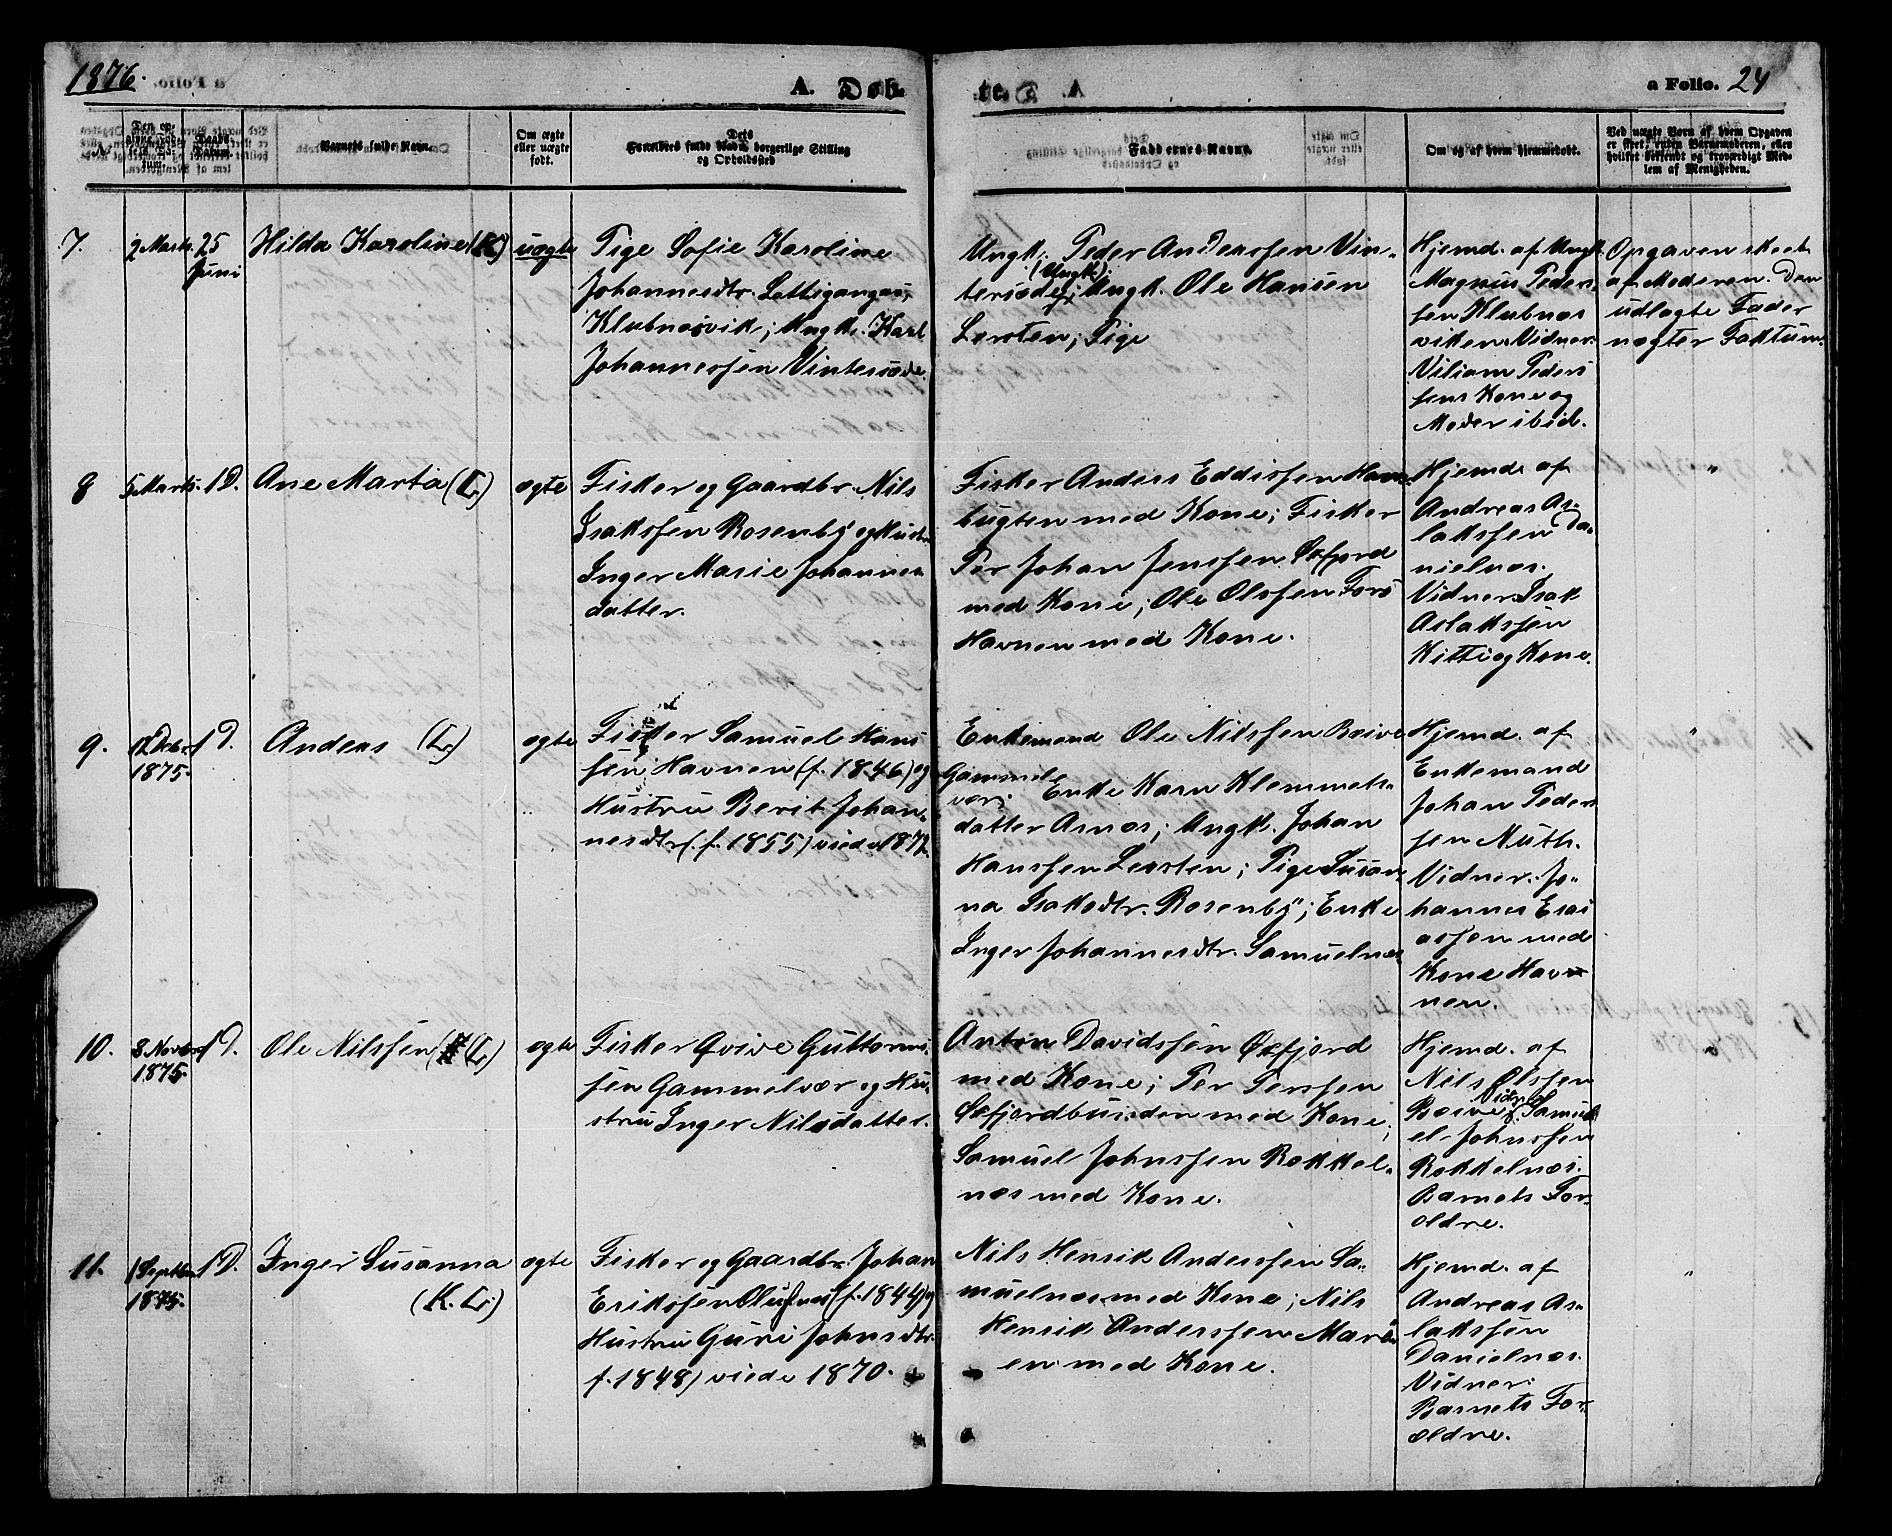 1876.
A. Døb-
te. A.
a Folio. 24
№
Den op-
givne Fød-
sels Da-
tum.
Daabs-
Datum.
Barnets fulde Navn.
Om ægte
eller uægte
født.
Dets
Forældres fulde Navn, borgerlige Stilling
og Opholdssted
Faddernes Navne.
Om og af hvem hjemmedøbt.
Ved uægte Børn af hvem Opgaven
er skeet, enten Barnemoderen, eller
hvilket bekjendt og troværdigt Med-
lem af Menigheden.
7.
2 Marts
25
Juni
Hilda Karoline (K)
uægte
Pige Sofie Karoline
Johannesdtr.
Klubnæsvik; Ungk. Karl
Johannessen Vintersæde.
Ungk. Peder Anderssen Vin-
(Ungk)
tersæde; Ungk. Ole Hansen
Lersten; Pige
Hjemd. af Ungk.
Magnus Peder-
sen Klubnæs
viken. Vidner:
Viliam Peder-
sens Kone og
Moder ibid.
Opgaven skeet
af Moderen. Den
udlagte Fader
nægter Faktum.
8
5 Marts.
1 D.
Ane Marta (L)
ægte
Fisker og Gaardbr. Nils
Isaksen Rosenby og Hustru
Inger Marie Johannes-
datter.
Fisker Anders Eddissen Ham-
bugten med Kone; Fisker
Per Johan Jenssen Øxfjord
med Kone; Ole Olsen Fors
Havnen med Kone.
Hjemd. af
Andreas As-
laksen Da-
nielnæs.
Vidner: Isak
Aslaksen
Kitti og Kone.
"
9.
12 Decbr.
1875.
1 D.
Anders (L)
ægte
Fisker Samuel Hans-
sen Havnen (f. 1846) og
Hustru Berit Johan-
nesdtr. (f. 1855) viede 187
Enkemand Ole Nilssen Bæive
Gammel-
vær; Enke Karn Klemmets-
datter Asnæs; Ungk. Johan
Hanssen Lersten; Pige Susan-
na Isaksdtr. Rosenby; Enke
Inger Johannesdtr. Samuelnæs
Hjemd. af
Enkemand
Johan Peder-
sen Muth.
Vidner: Jo-
hannes Esai-
assen med
Kone Hav-
nen.
"
10.
8 Novbr.
1875.
1 D.
Ole Nilssen (L)
ægte
Fisker Qvive Guttorms-
sen Gammelvær og Hu-
stru Inger Nilsdatter.
Anton Davidssen Øxfjord
med Kone; Per Perssen
Øxfjordbunden med Kone;
Samuel Johnssen Rokkel-
næs med Kone.
Hjemd. af
Nils Olsen
Vidner
Bæive; Samu-
el Johnssen
Rokkelnæs.
Barnets For-
ældre.
"
11.
1 Septbr.
1875.
1 D.
Inger Susanna
(K. L.)
ægte
Fisker og Gaardbr. Johan
Erikssen Olufnæs (f. 1844) og
Hustru Guri Johnsdtr.
f. 1848) viede 1870.
Nils Henrik Anderssen Sa-
muelnæs med Kone; Nils
Henrik Anderssen Mar
en med Kone.
Hjemd. af
Andreas As-
laksen
Danielnæs.
Vidner:
Barnets For-
ældre.
"